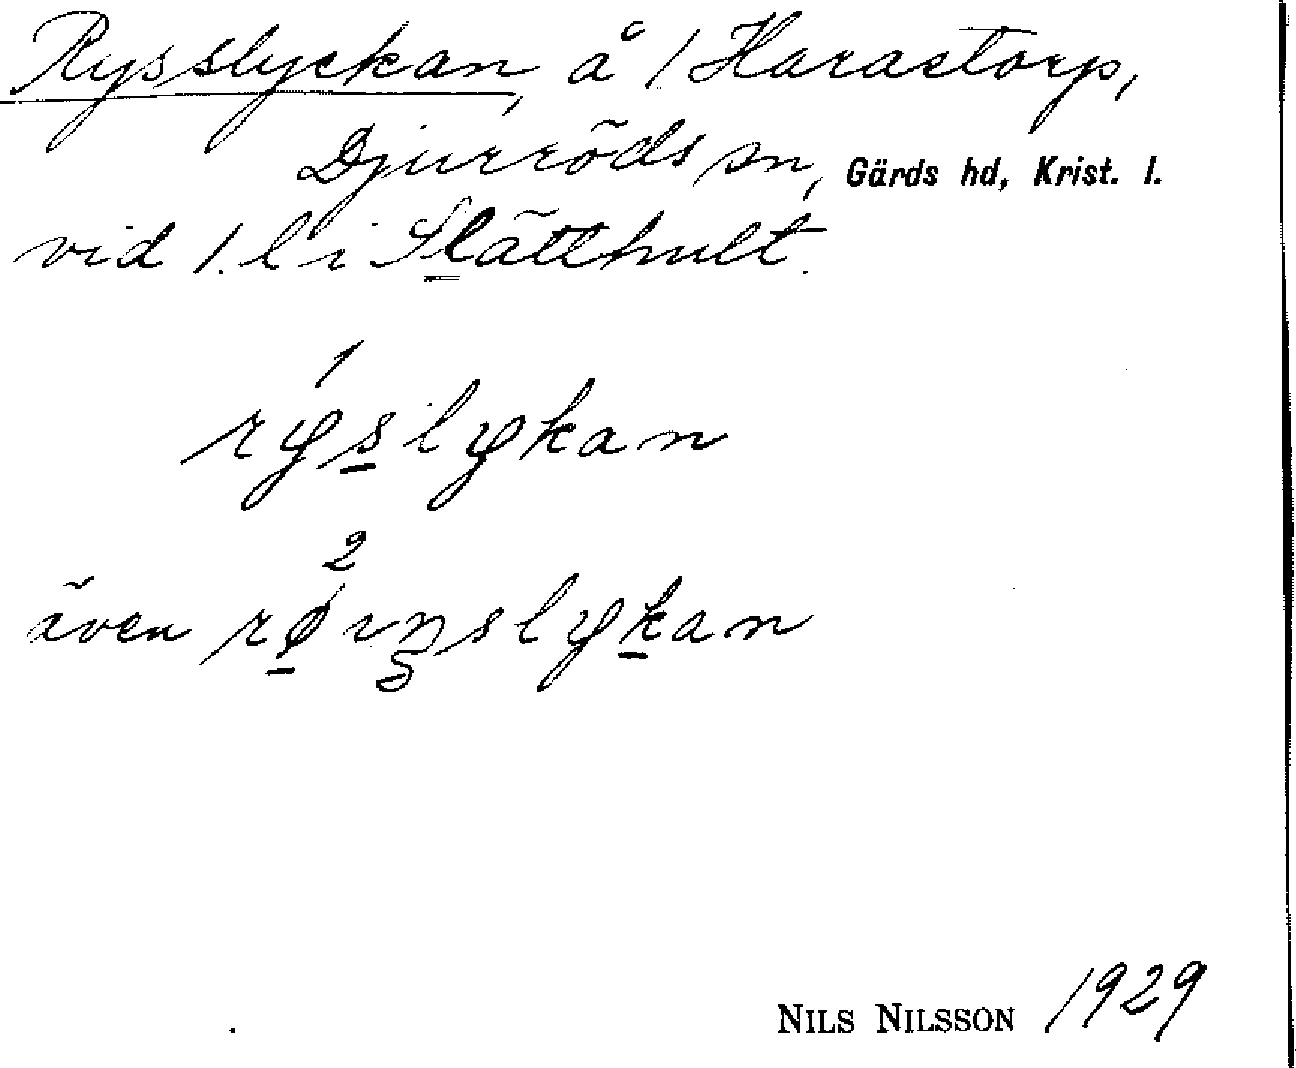 Rysslyckan, å 1 Harastorp,
Djurröds sn, Gärds hd, Krist. l.
vid 1. l i Slätthult.
1
rýslykan
2
även røvnslykan
NILS NILSSON 1929